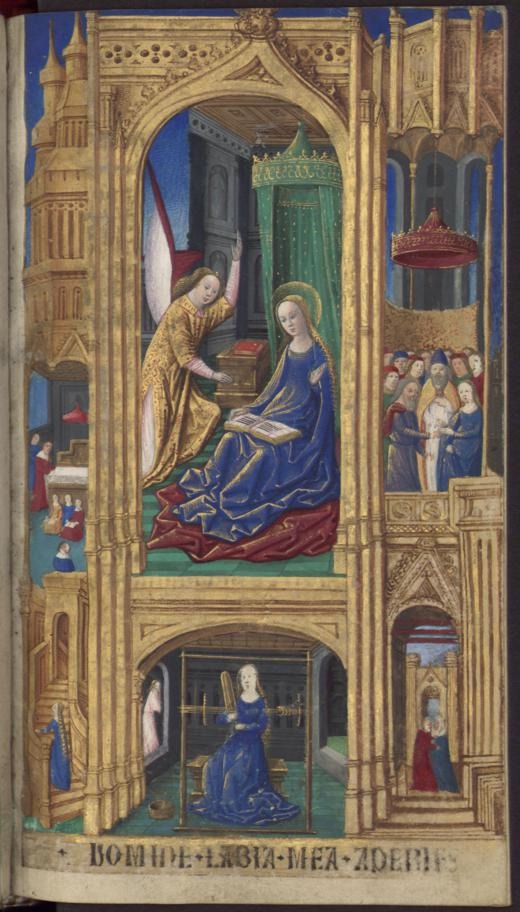 + DOMINE + LABIA + MEA + APERIES